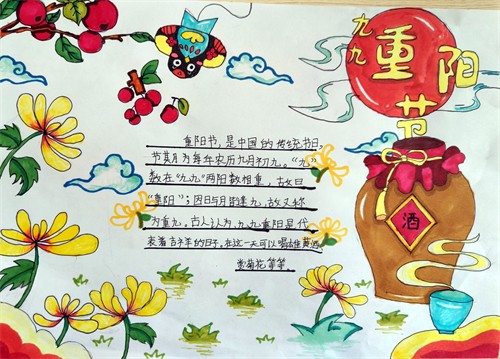 九九重阳节
酒
重阳节，是中国的传统节日，
节期为每年农历九月初九。“九”
数在“九九”两阳数相重，故曰
“重阳”；因日与月皆逢九，故又称
为重九，古人认为九九重阳是代
表着吉祥的日子。在这一天可以喝雄黄酒
赏菊花等等